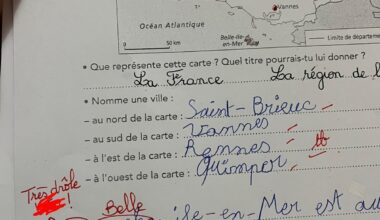 Vannes
Océan Atlantique
Belle-Ile-
en-Mer
0 50 km
Limite de départeme
• Que représente cette carte ? Quel titre pourrais-tu lui donner ?
La France La région de l
• Nomme une ville :
– au nord de la carte : Saint-Brieuc
– au sud de la carte : Vannes
– à l'est de la carte : Rennes tb
– à l'ouest de la carte : Quimper
Très drôle !
Belle
ile-en-Mer est au